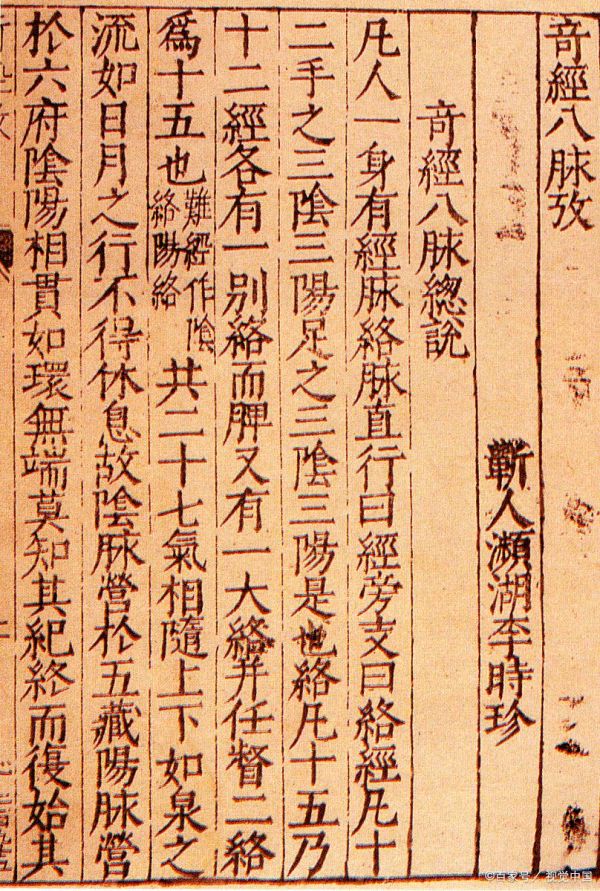 奇經八脉攷
蘄人瀕湖李時珍
奇經八脉總說
凡人一身有經脉絡脉直行曰經旁支曰絡經凡十
二手之三陰三陽足之三陰三陽是也絡凡十五乃
十二經各有一別絡而脾又有一大絡并任督二絡
爲十五也難經作陰絡陽絡共二十七氣相隨上下如泉之
流如日月之行不得休息故陰脉營於五藏陽脉營
於六府陰陽相貫如環無端莫知其紀終而復始其
©百家号/视觉中国